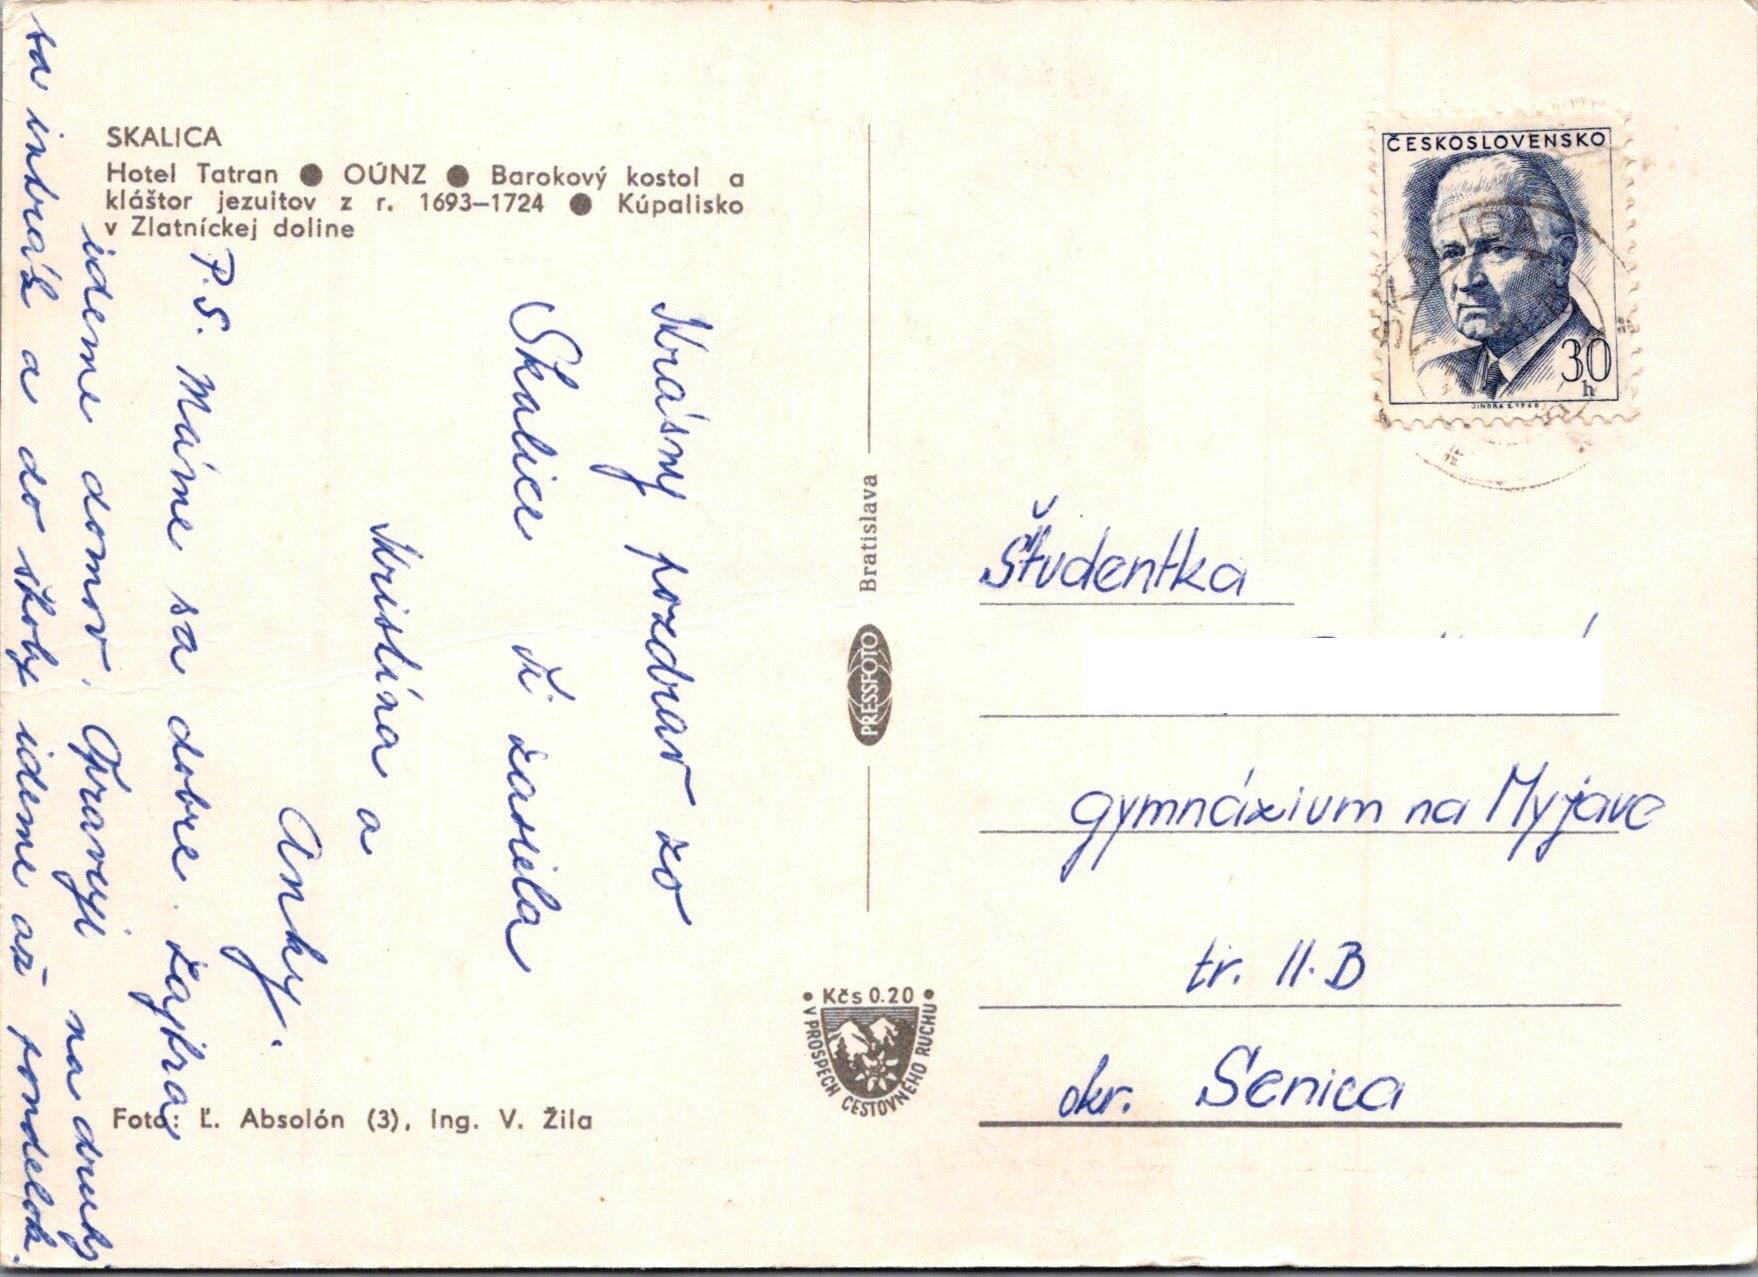 SKALICA
Hotel Tatran ● OÚNZ ● Barokový kostol a
kláštor jezuitov z r. 1693–1724 ● Kúpalisko
v Zlatníckej doline
Krásny pozdrav zo
Skalice Ti zasiela
Kristína a
Anky.
P.S. Máme sa dobre. Zajtra
ideme domov. na druhy
sa intrák a do školy ideme až pondelok.
Foto: Ľ. Absolón (3), Ing. V. Žila
Bratislava
PRESSFOTO
Kčs 0.20
V PROSPECH CESTOVNÉHO RUCHU
ČESKOSLOVENSKO
30
h
JINDRA S. 1968
Študentka
gymnázium na Myjave
tr. II. B
okr. Senica